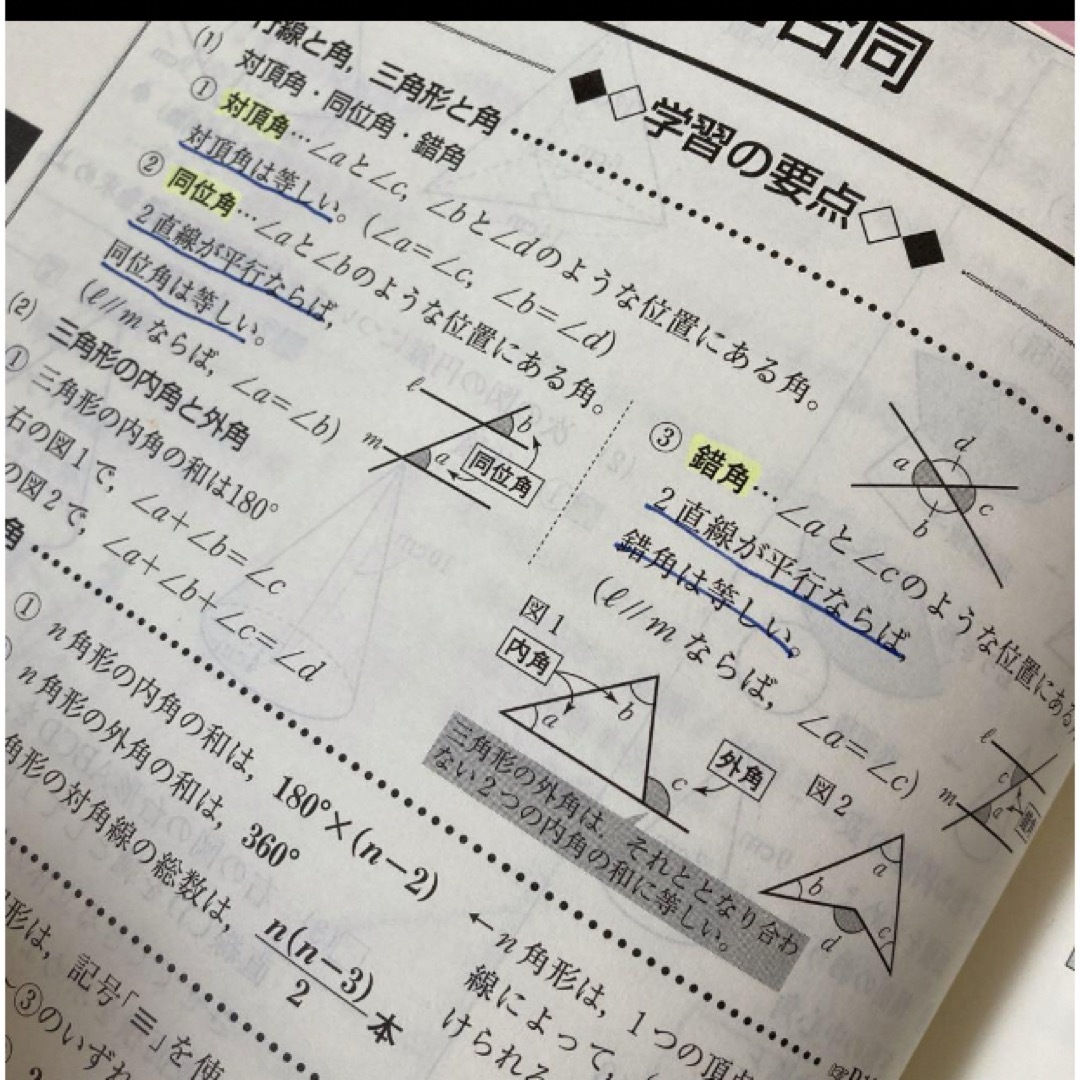 合同
◆◇学習の要点◇◆
行線と角，三角形と角
(1) 対頂角・同位角・錯角
① 対頂角…∠aと∠c，∠bと∠dのような位置にある角。
対頂角は等しい。(∠a=∠c，∠b=∠d)
② 同位角…∠aと∠bのような位置にある角。
2直線が平行ならば，
同位角は等しい。
(ℓ//mならば，∠a=∠b)
ℓ
m
a
b
同位角
③ 錯角…∠aと∠cのような位置にある
2直線が平行ならば，
錯角は等しい。
(ℓ//mならば，∠a=∠c)
a
b
c
d
ℓ
m
c
a
(2) 三角形の内角と外角
① 三角形の内角の和は180°
右の図1で，∠a+∠b=∠c
の図2で，∠a+∠b+∠c=∠d
図1
内角
a
b
c
外角
三角形の外角は，それととなり合わ
ない2つの内角の和に等しい。
図2
a
b
c
d
角
① n角形の内角の和は，180°×(n-2)
n角形の外角の和は，360°
角形の対角線の総数は，n(n-3)/2 本
←n角形は，1つの頂点
線によって，
けられる
形は，記号「≡」を使
～③のいずれ